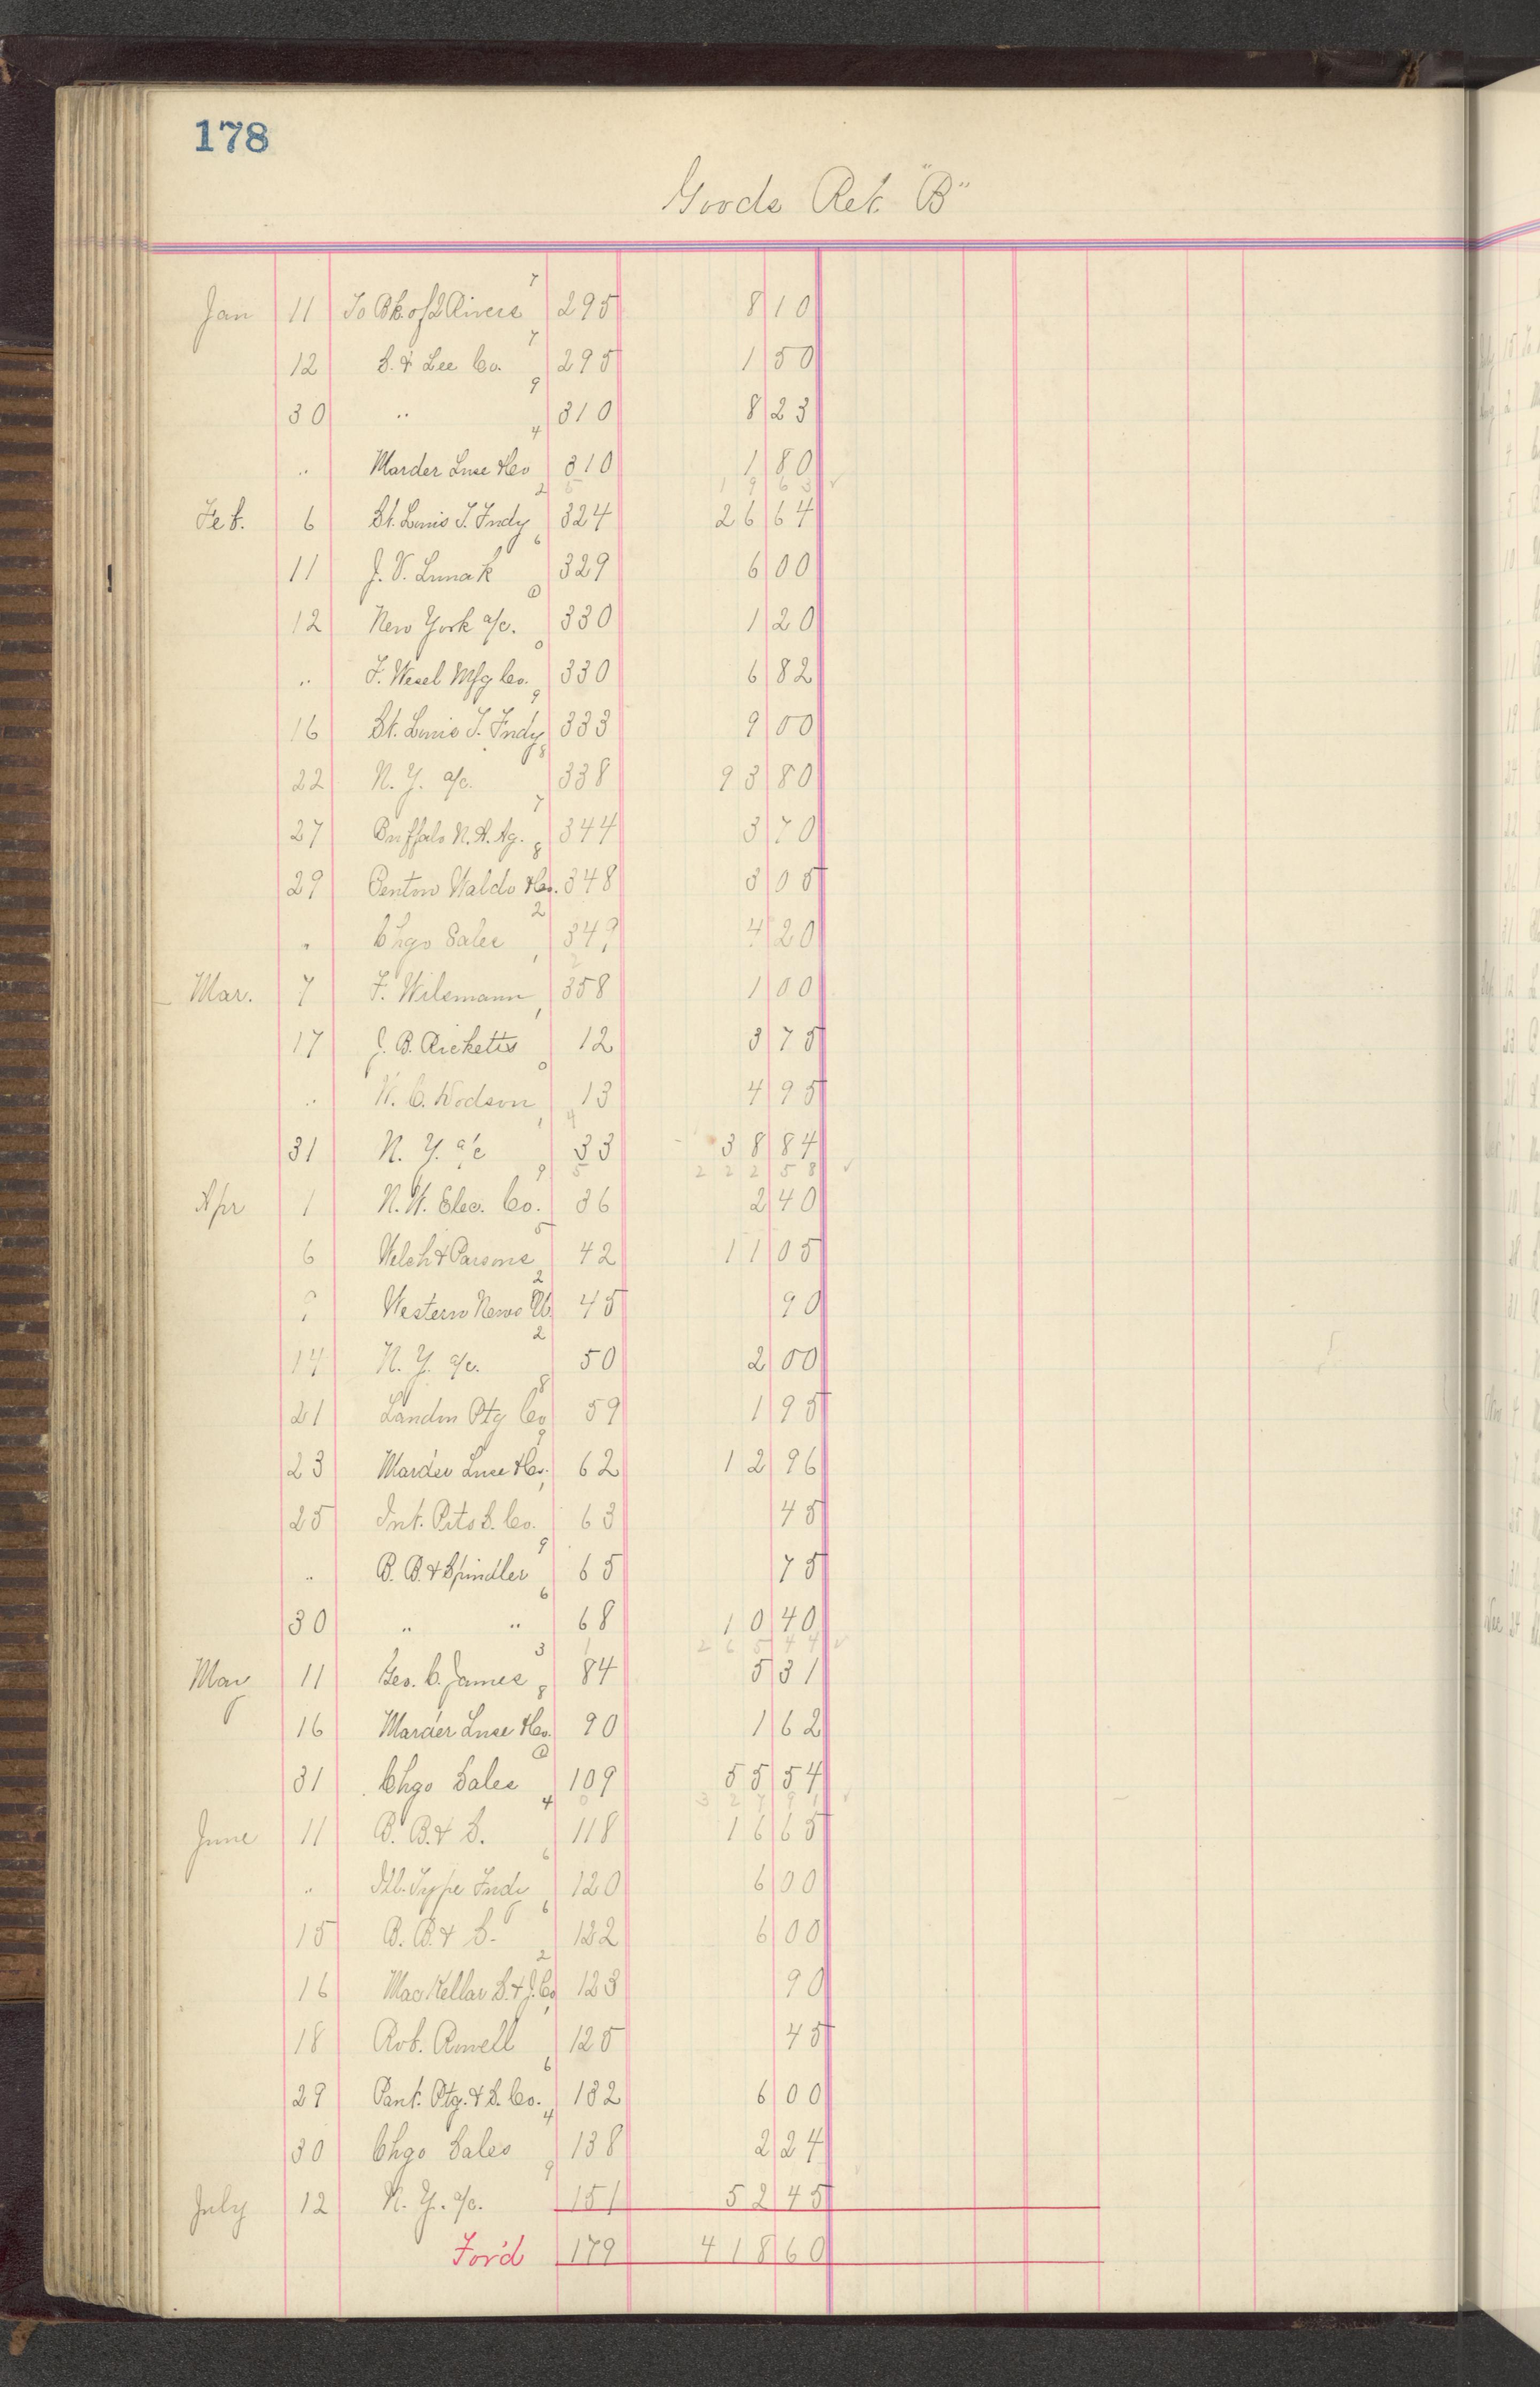 178
Goods Ret. "B"
Jan 11 To Bk. of 2 Rivers 7 295 8 10
12 S. & Lee Co. 7 295 1 50
30 " 9 310 8 23
" Marder Luse & Co 4 310 1 80
1 9 6 3 ✓
Feb. 6 St. Louis T. Fndy 2 324 26 64
11 J. V. Lunak 6 329 6 00
12 New York a/c. 0 330 1 20
" F. Wesel Mfg Co. 0 330 6 82
16 St. Louis T. Fndy 9 333 9 00
22 N. Y. a/c. 8 338 93 80
27 Buffalo N. A. Ag. 7 344 3 70
29 Benton Waldo & Co. 8 348 3 05
" Chgo Sales 2 349 4 20
Mar. 7 F. Wilsmann 358 1 00
17 J. B. Ricketts 12 3 75
" W. C. Wodson 0 13 4 95
31 N. Y. a/c 33 38 84
2 2 2 5 8 ✓
Apr 1 N. W. Elec. Co. 9 36 2 40
6 Welch & Parsons 5 42 11 05
9 Western News U. 2 45 90
14 N. Y. a/c. 2 50 2 00
21 Landon Ptg Co 8 59 1 95
23 Marder Luse & Co. 9 62 12 96
25 Int. Pits S. Co. 63 45
" B. B. & Spindler 9 65 75
30 " " 6 68 10 40
2 6 5 4 4 ✓
May 11 Geo. C. James 3 84 5 31
16 Marder Luse & Co. 8 90 1 62
31 Chgo Sales 0 109 55 54
3 2 7 9 1 ✓
June 11 B. B. & S. 4 118 16 65
" Ill. Type Fndy 6 120 6 00
15 B. B. & S. 6 122 6 00
16 MacKellar S. & J. Co 2 123 90
18 Rob. Rowell 125 45
29 Pant. Ptg. & S. Co. 6 132 6 00
30 Chgo Sales 4 138 2 24
July 12 N. Y. a/c. 9 151 52 45
For'd 179 418 60